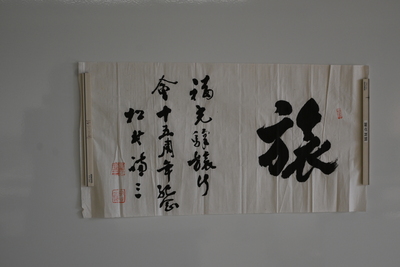 旅
福光駅旅行
会十五周年記念
松村謙三